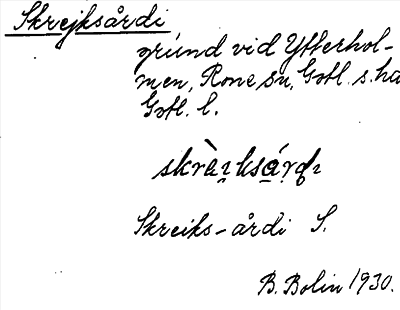 Skrejksårdi
grund vid Ytterhol-
men, Rone sn, Gotl. s. hd
Gotl. l.
skràiksárdi
Skreiks-årdi S.
B. Bolin 1930.